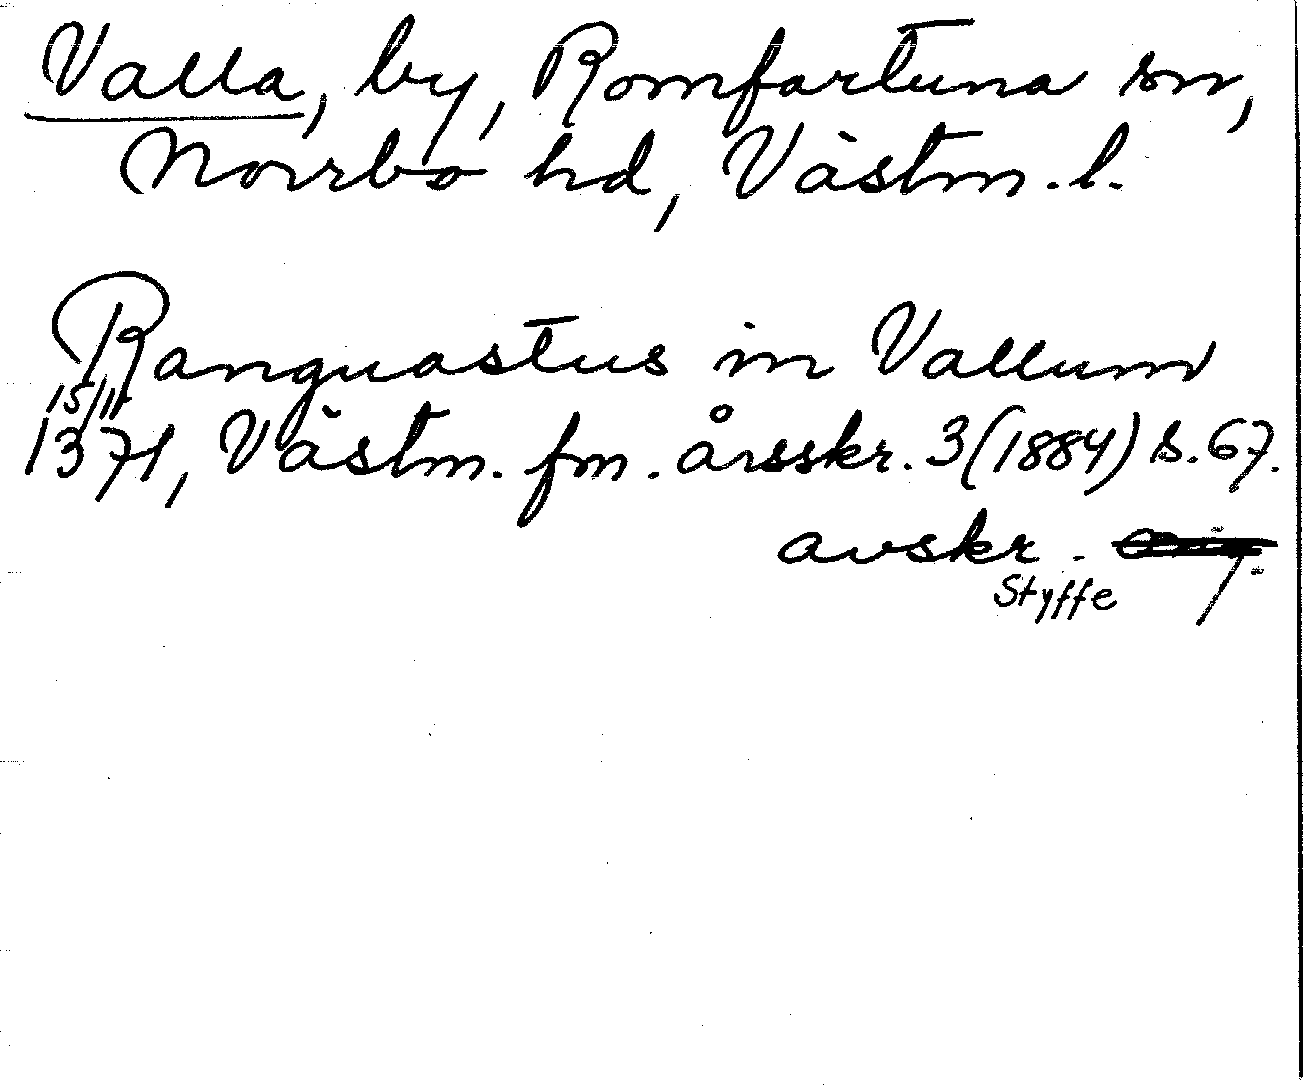 Valla, by, Romfartuna sn,
Norrbo hd, Västm. l.
Ranguastus in Vallum
15/11
1371, Västm. fm. årsskr. 3 (1884) s. 67.
avskr.
Styffe